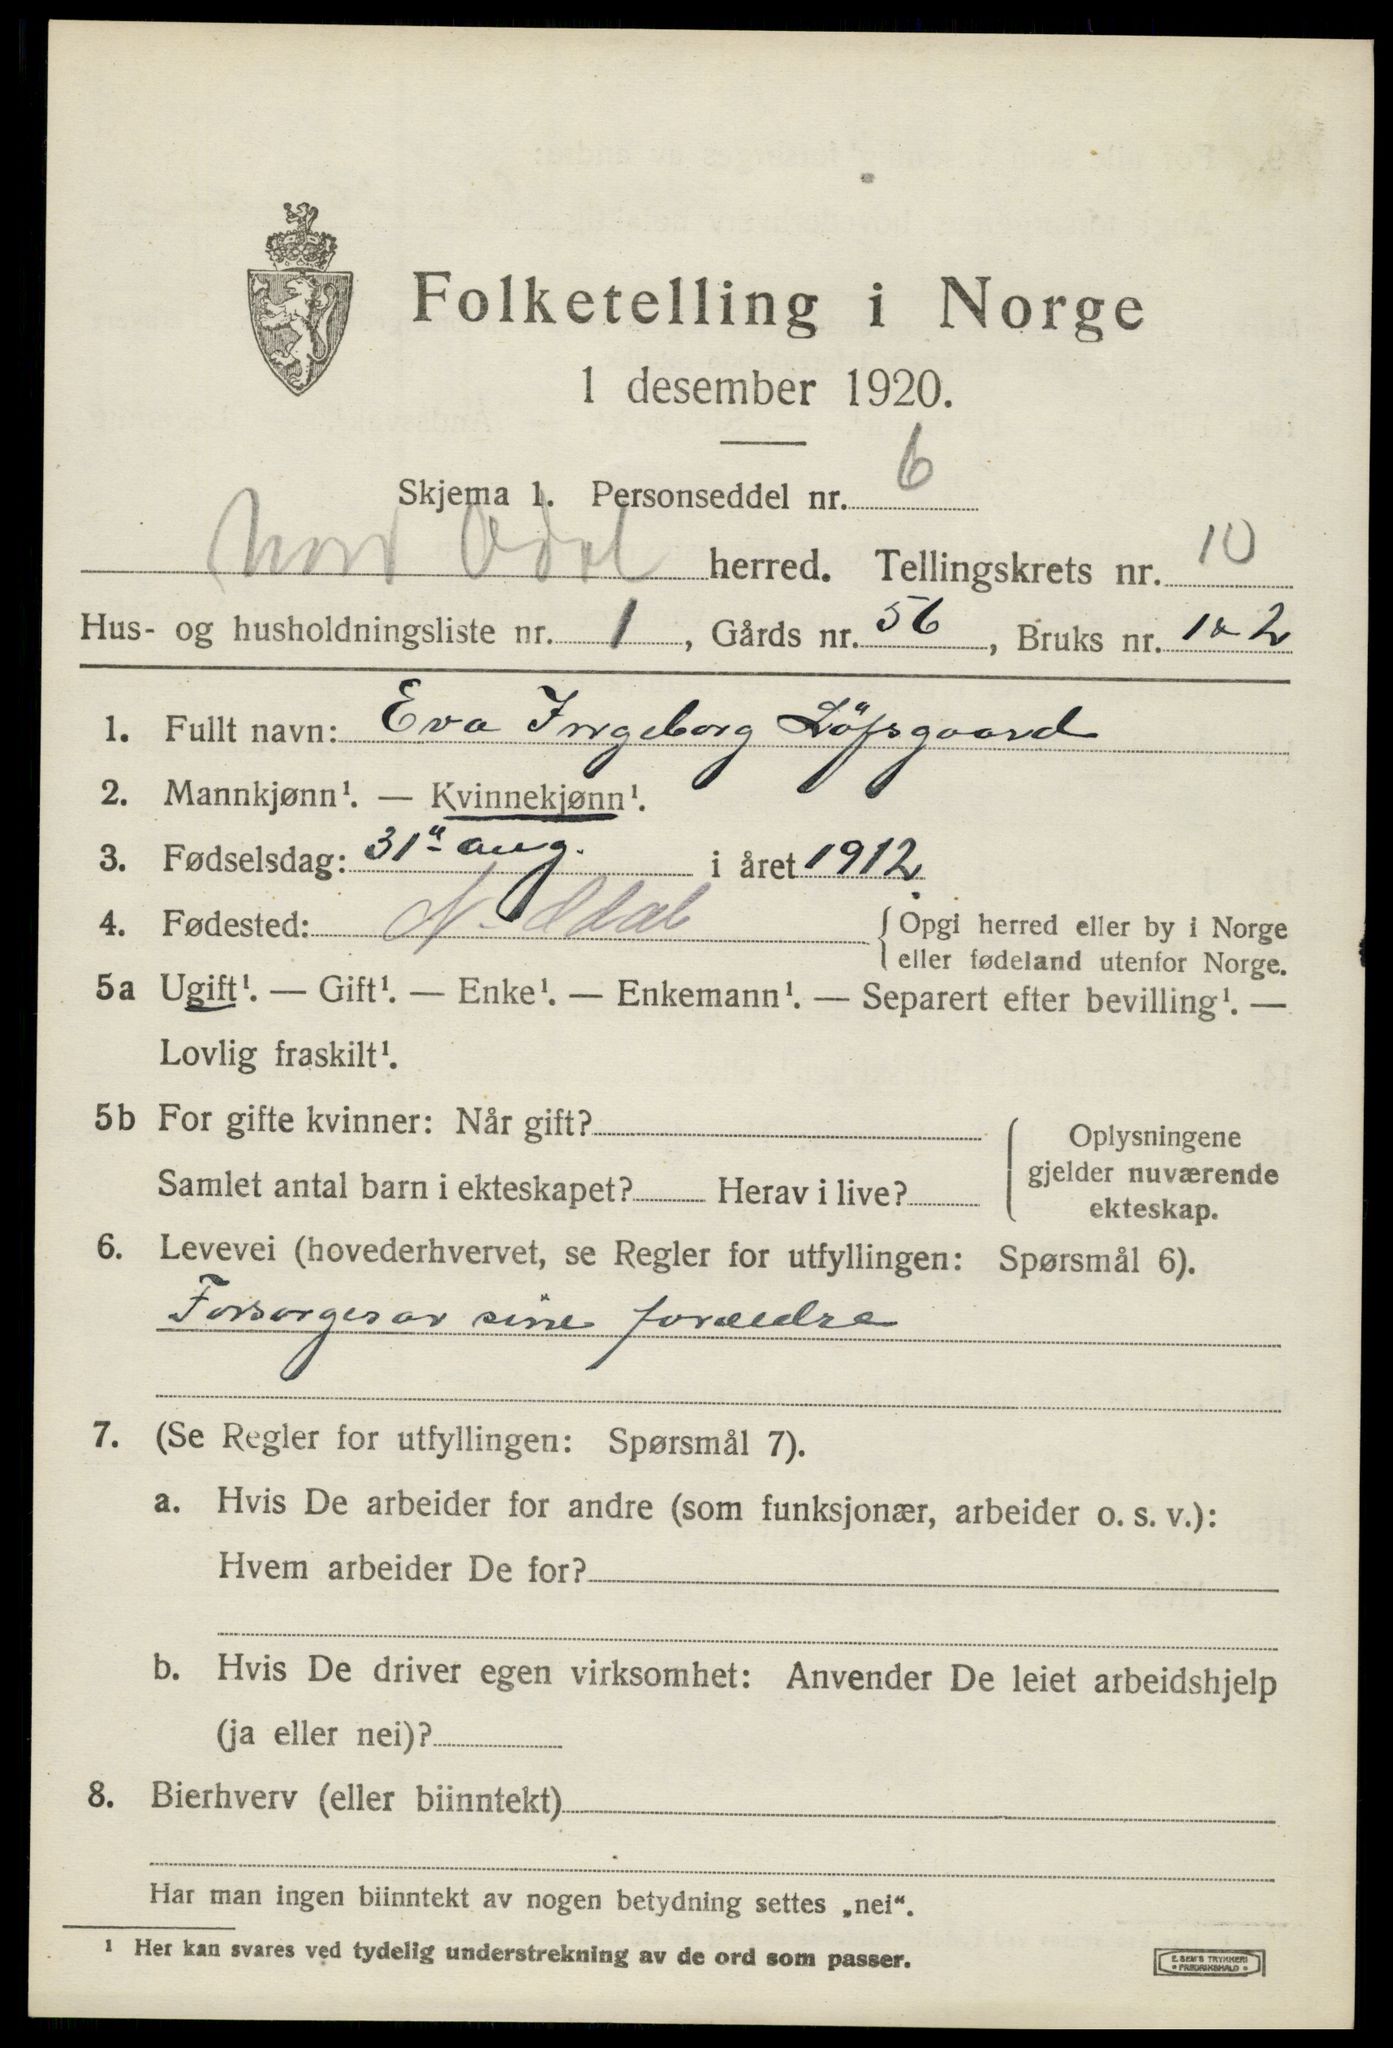 Folketelling i Norge
1 desember 1920.
Skjema 1. Personseddel nr. 6
Nord Odal herred. Tellingskrets nr. 10
Hus- og husholdningsliste nr. 1, Gårds nr. 56, Bruks nr. 1 & 2
1. Fullt navn: Eva Ingeborg Löfsgaard
2. Mannkjønn¹. — Kvinnekjønn¹.
3. Fødselsdag: 31" aug. i året 1912
4. Fødested: N. Odal { Opgi herred eller by i Norge
eller fødeland utenfor Norge.
5a Ugift¹. — Gift¹. — Enke¹. — Enkemann¹. — Separert efter bevilling¹. —
Lovlig fraskilt¹.
5b For gifte kvinner: Når gift?
Samlet antal barn i ekteskapet? Herav i live?
Oplysningene
gjelder nuværende
ekteskap.
6. Levevei (hovederhvervet, se Regler for utfyllingen: Spørsmål 6).
Forsørges av sine forældre
7. (Se Regler for utfyllingen: Spørsmål 7).
a. Hvis De arbeider for andre (som funksjonær, arbeider o. s. v.):
Hvem arbeider De for?
b. Hvis De driver egen virksomhet: Anvender De leiet arbeidshjelp
(ja eller nei)?
8. Bierhverv (eller biinntekt)
Har man ingen biinntekt av nogen betydning settes „nei“.
¹ Her kan svares ved tydelig understrekning av de ord som passer.
E. SEM'S TRYKKERI
• FREDRIKSHALD •